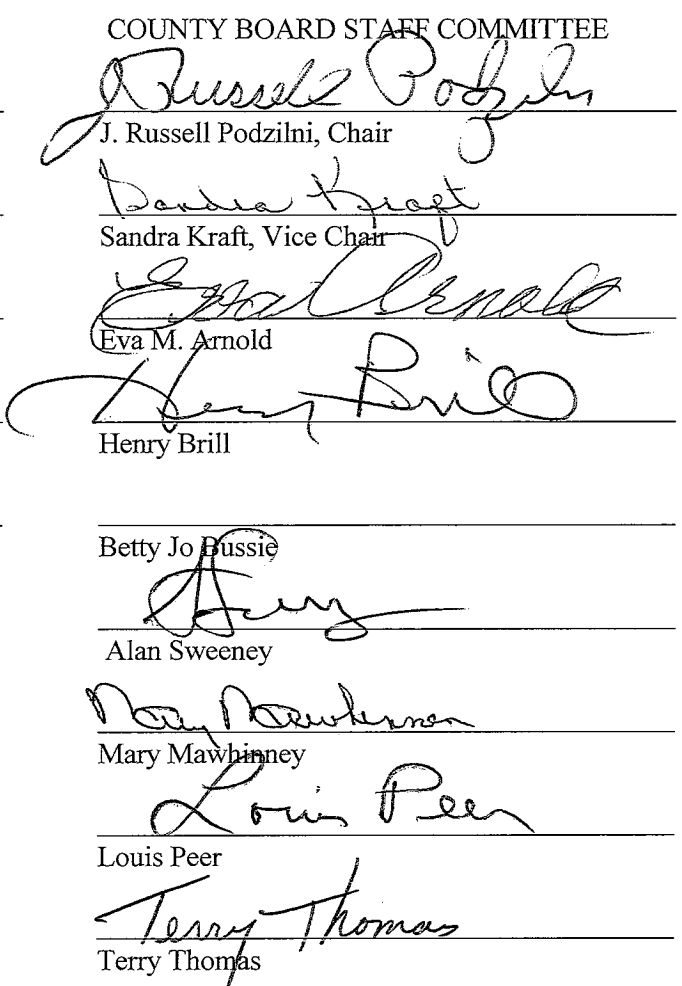 COUNTY BOARD STAFF COMMITTEE
J Russell Podzilni
J. Russell Podzilni, Chair
Sandra Kraft
Sandra Kraft, Vice Chair
Eva Arnold
Eva M. Arnold
Henry Brill
Henry Brill
Betty Jo Bussie
Alan Sweeney
Mary Mawhinney
Mary Mawhinney
Louis Peer
Louis Peer
Terry Thomas
Terry Thomas